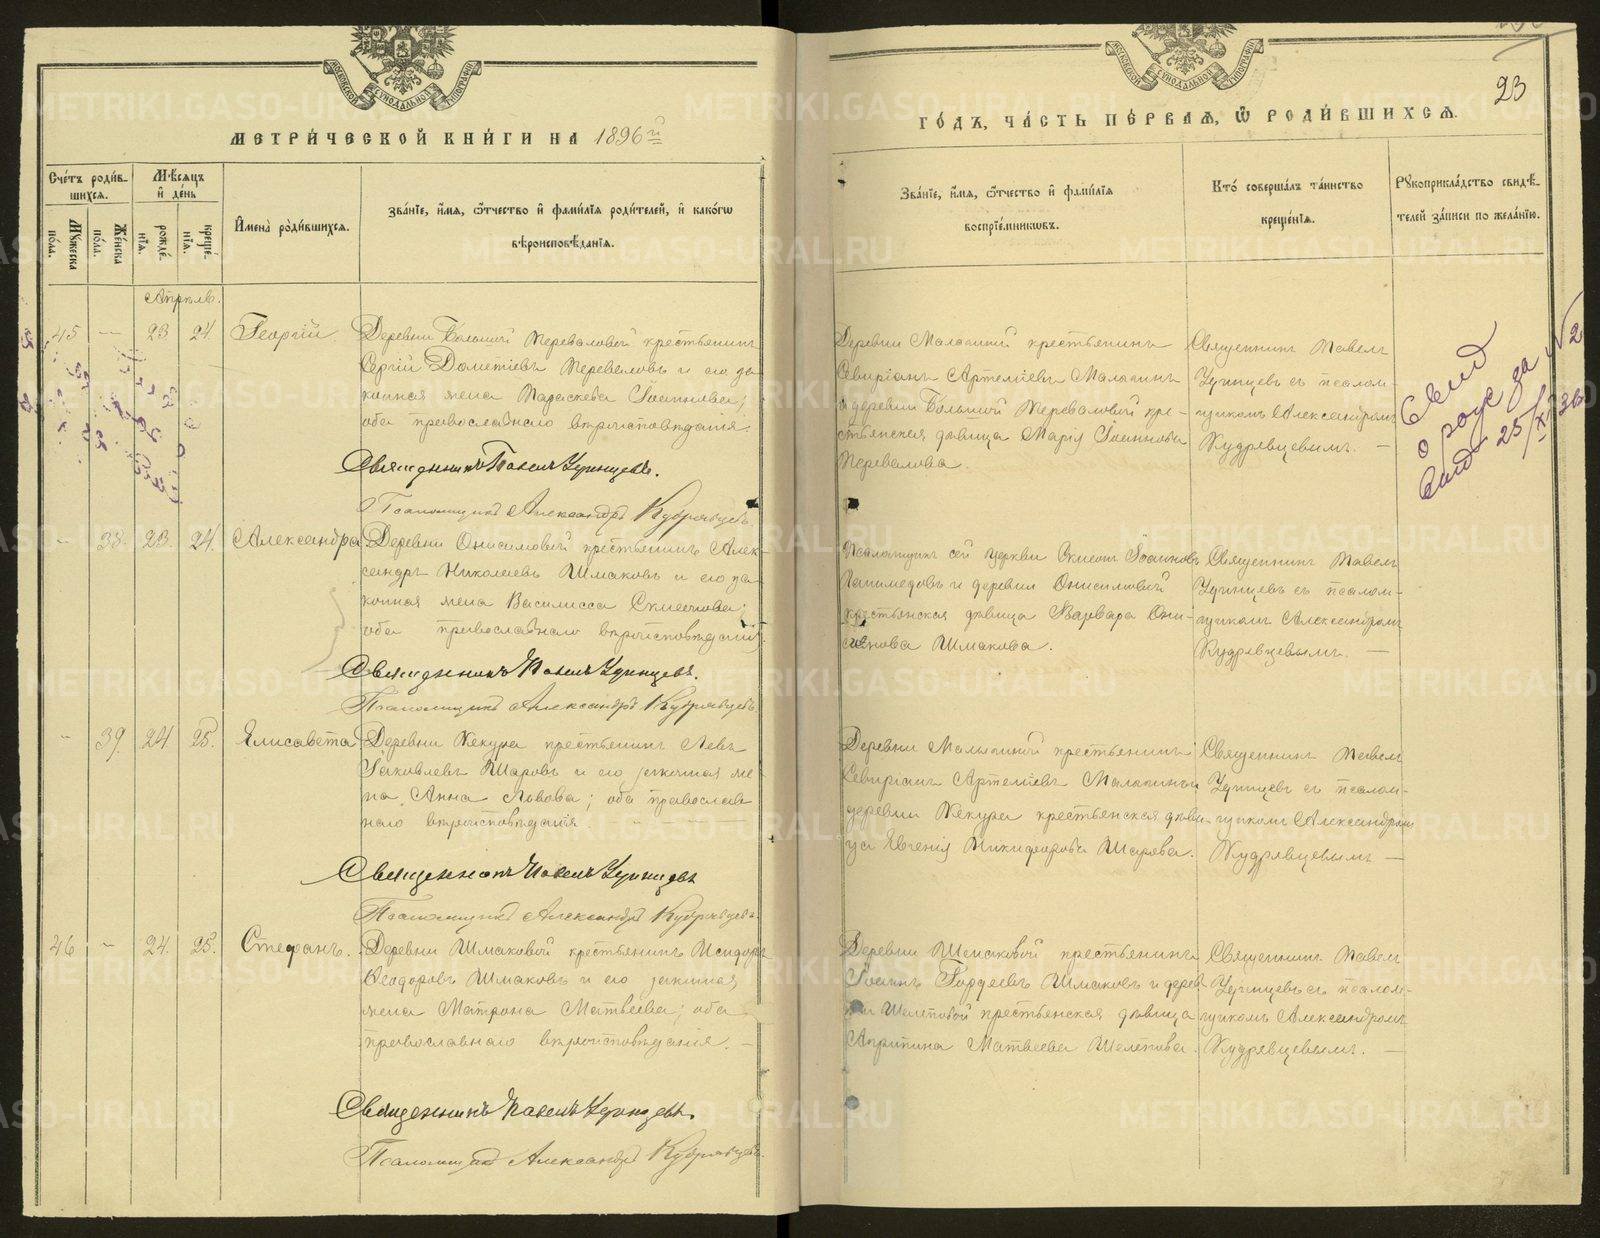 МЕТРИ́ЧЕСКОЙ КНИ́ГИ НА 1896й
Сче́тъ роди́в-
шихся.
Му́жеска
по́ла.
Же́нска
по́ла.
Мѣ́сяцъ
и҆ де́нь
рожде́-
нїя.
креще́-
нїя.
И҆мена̀ роди́вшихся.
Зва́нїе, и҆́мя, ѻ҆́тчество и҆ фами́лїя роди́телей, и҆ како́гѡ
вѣроисповѣ́данїя.
Апрѣль.
45 — 23 24. Георгій
Деревни Большой Переваловой крестьянинъ
Сергій Дометіевъ Переваловъ и его за-
конная жена Параскева Іоаннова;
оба православнаго вѣроисповѣданія.
Священникъ Павелъ Удинцевъ.
Псаломщикъ Александръ Кудрявцевъ.
- 38. 23. 24. Александра
Деревни Онисимовой крестьянинъ Алек-
сандръ Николаевъ Шмаковъ и его за-
конная жена Василисса
оба православнаго вѣроисповѣданія.
Священникъ Павелъ Удинцевъ.
Псаломщикъ Александръ Кудрявцевъ.
- 39. 24 25. Елисавета
Деревни Кекура крестьянинъ Левъ
Іаковлевъ Шаровъ и его законная же-
на Анна Львова; оба православ-
наго вѣроисповѣданія.
Священникъ Павелъ Удинцевъ
Псаломщикъ Александръ Кудрявцевъ.
46 - 24. 25. Стефанъ.
Деревни Шмаковой крестьянинъ Исидоръ
Ѳеодоровъ Шмаковъ и его законная
жена Матрона Матвѣева; оба
православнаго вѣроисповѣданія. —
Священникъ Павелъ Удинцевъ.
Псаломщикъ Александръ Кудрявцевъ.
23
ГО́ДЪ, ЧА́СТЬ ПЕ́РВАЯ, Ѡ҆ РОДИ́ВШИХСЯ.
Зва́нїе, и҆́мя, ѻ҆́тчество и҆ фами́лїя
воспрїе́мникѡвъ.
Кто̀ соверша́лъ та́инство
креще́нїя.
Рукоприкла́дство свидѣ́-
телей за́писи по жела́нїю.
Деревни крестьянинъ
Севиріанъ Артеміевъ
и деревни Большой Переваловой кре-
стьянская дѣвица Марія Іоаннова
Перевалова.
Священникъ Павелъ
Удинцевъ съ псалом-
щикомъ Александромъ
Кудрявцевымъ. —
Псаломщикъ сей церкви Іоанновъ
и деревни Онисимовой
крестьянская дѣвица Варвара Они-
симова Шмакова.
Священникъ Павелъ
Удинцевъ съ псалом-
щикомъ Александромъ
Кудрявцевымъ. —
Деревни крестьянинъ
Севиріанъ Артеміевъ
деревни Кекура крестьянская дѣви-
ца Евгенія Никифорова Шарова.
Священникъ Павелъ
Удинцевъ съ псалом-
щикомъ Александромъ
Кудрявцевымъ —
Деревни крестьянинъ
Іоаннъ Гордеевъ Шмаковъ и дерев-
ни Шелеповой крестьянская дѣвица
Агрипина Матвѣева Шелепова.
Священникъ Павелъ
Удинцевъ съ псалом-
щикомъ Александромъ
Кудрявцевымъ. —
METRIKI.GASO-URAL.RU